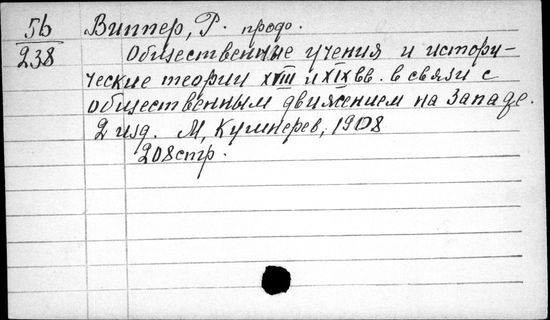 5б Виппер, Р. продо.
238 Общественные учения и истори-
ческие теории XVIII и XIX вв. в связи с
общественным движением на Западе.
2 изд. М, Кушнерев, 1908
208 стр.